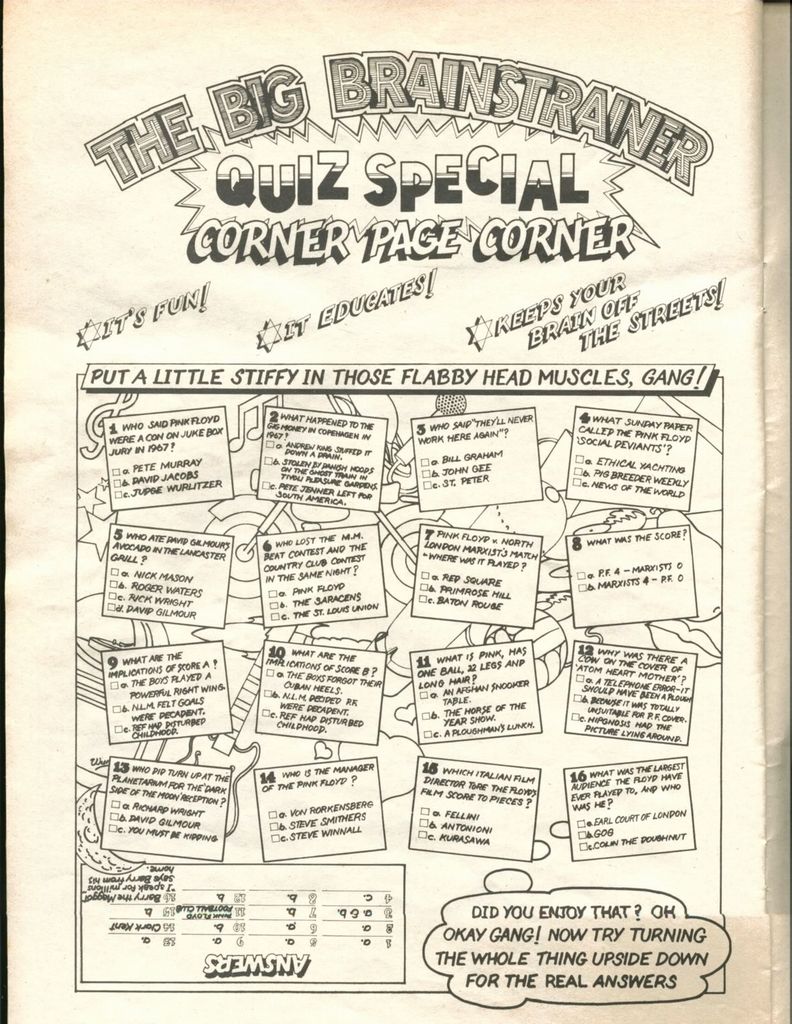 THE BIG BRAINSTRAINER
QUIZ SPECIAL
CORNER PAGE CORNER
IT'S FUN!
IT EDUCATES!
KEEPS YOUR
BRAIN OFF
THE STREETS!
PUT A LITTLE STIFFY IN THOSE FLABBY HEAD MUSCLES, GANG!
1 WHO SAID PINK FLOYD
WERE A CON ON JUKE BOX
JURY IN 1967?
a. PETE MURRAY
b. DAVID JACOBS
c. JUDGE WURLITZER
2 WHAT HAPPENED TO THE
GIG MONEY IN COPENHAGEN IN
1967?
a. ANDREW KING STUFFED IT
DOWN A DRAIN.
b. STOLEN BY DANISH HOODS
ON THE GHOST TRAIN IN
TIVOLI PLEASURE GARDENS.
c. PETE JENNER LEFT FOR
SOUTH AMERICA.
3 WHO SAID "THEY'LL NEVER
WORK HERE AGAIN"?
a. BILL GRAHAM
b. JOHN GEE
c. ST. PETER
4 WHAT SUNDAY PAPER
CALLED THE PINK FLOYD
'SOCIAL DEVIANTS'?
a. ETHICAL YACHTING
b. PIG BREEDER WEEKLY
c. NEWS OF THE WORLD
5 WHO ATE DAVID GILMOUR'S
AVOCADO IN THE LANCASTER
GRILL?
a. NICK MASON
b. ROGER WATERS
c. RICK WRIGHT
d. DAVID GILMOUR
6 WHO LOST THE M.M.
BEAT CONTEST AND THE
COUNTRY CLUB CONTEST
IN THE SAME NIGHT?
a. PINK FLOYD
b. THE SARACENS
c. THE ST. LOUIS UNION
7 PINK FLOYD v. NORTH
LONDON MARXIST'S MATCH
- WHERE WAS IT PLAYED?
a. RED SQUARE
b. PRIMROSE HILL
c. BATON ROUGE
8 WHAT WAS THE SCORE?
a. P.F. 4 - MARXISTS 0
b. MARXISTS 4 - P.F. 0
9 WHAT ARE THE
IMPLICATIONS OF SCORE A?
a. THE BOYS PLAYED A
POWERFUL RIGHT WING.
b. N.L.M. FELT GOALS
WERE DECADENT.
c. REF HAD DISTURBED
CHILDHOOD.
10 WHAT ARE THE
IMPLICATIONS OF SCORE B?
a. THE BOYS FORGOT THEIR
CUBAN HEELS.
b. N.L.M. DECIDED P.F.
WERE DECADENT.
c. REF HAD DISTURBED
CHILDHOOD.
11 WHAT IS PINK, HAS
ONE BALL, 22 LEGS AND
LONG HAIR?
a. AN AFGHAN SNOOKER
TABLE.
b. THE HORSE OF THE
YEAR SHOW.
c. A PLOUGHMAN'S LUNCH.
12 WHY WAS THERE A
COW ON THE COVER OF
'ATOM HEART MOTHER'?
a. A TELEPHONE ERROR - IT
SHOULD HAVE BEEN A PLOUGH
b. BECAUSE IT WAS TOTALLY
UNSUITABLE FOR P.F. COVER.
c. HIPGNOSIS HAD THE
PICTURE LYING AROUND.
13 WHO DID TURN UP AT THE
PLANETARIUM FOR THE 'DARK
SIDE OF THE MOON' RECEPTION?
a. RICHARD WRIGHT
b. DAVID GILMOUR
c. YOU MUST BE KIDDING
14 WHO IS THE MANAGER
OF THE PINK FLOYD?
a. VON RORKENSBERG
b. STEVE SMITHERS
c. STEVE WINNALL
15 WHICH ITALIAN FILM
DIRECTOR TORE THE FLOYD'S
FILM SCORE TO PIECES?
a. FELLINI
b. ANTONIONI
c. KURASAWA
16 WHAT WAS THE LARGEST
AUDIENCE THE FLOYD HAVE
EVER PLAYED TO, AND WHO
WAS HE?
a. EARL COURT OF LONDON
b. GOG
c. COLIN THE DOUGHNUT
ANSWERS
1 a. 5 a. 9 a. 13 a.
2 a. 6 a. 10 b. 14 Clark Kent
3 a & b. 7 b. 11 PINK FLOYD FOOTBALL CLUB 15 b.
4 c. 8 b. 12 b. 16 Barry the Maggot
"I speak for millions"
says Barry from his
home.
DID YOU ENJOY THAT? OH
OKAY GANG! NOW TRY TURNING
THE WHOLE THING UPSIDE DOWN
FOR THE REAL ANSWERS